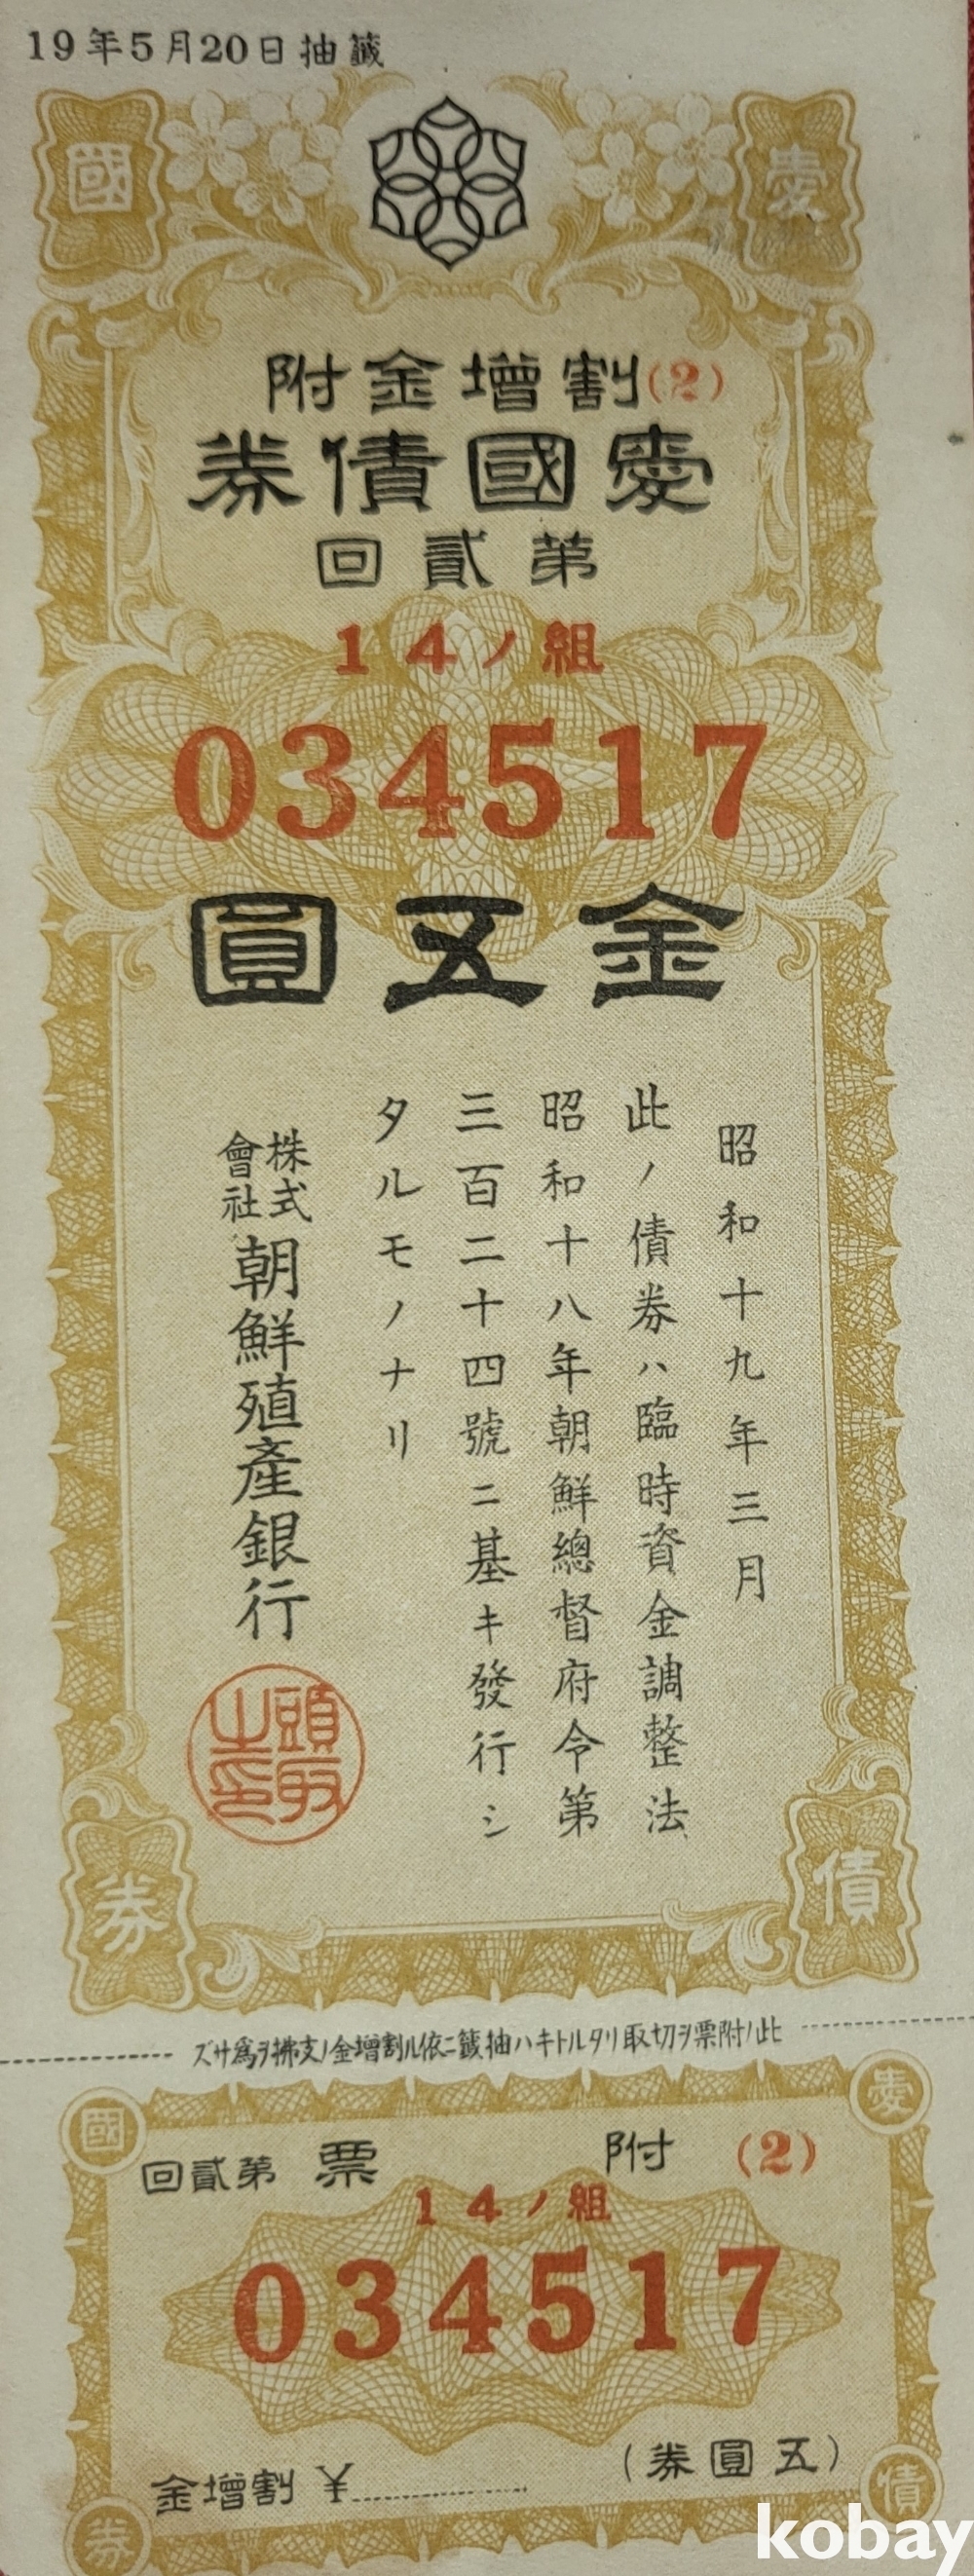 19年5月20日抽籤
國 愛
附金增割(2)
券債國愛
回貳第
14ノ組
034517
圓五金
昭和十九年三月
此ノ債券ハ臨時資金調整法
昭和十八年朝鮮總督府令第
三百二十四號ニ基キ發行シ
タルモノナリ
株式會社朝鮮殖產銀行
頭取之印
券 債
ズサ爲ヲ拂支ノ金增割ル依ニ籤抽ハキトルタリ取切ヲ票附ノ此
國 愛
回貳第 票 附 (2)
14ノ組
034517
(券圓五)
金增割 ¥
券 債
kobay